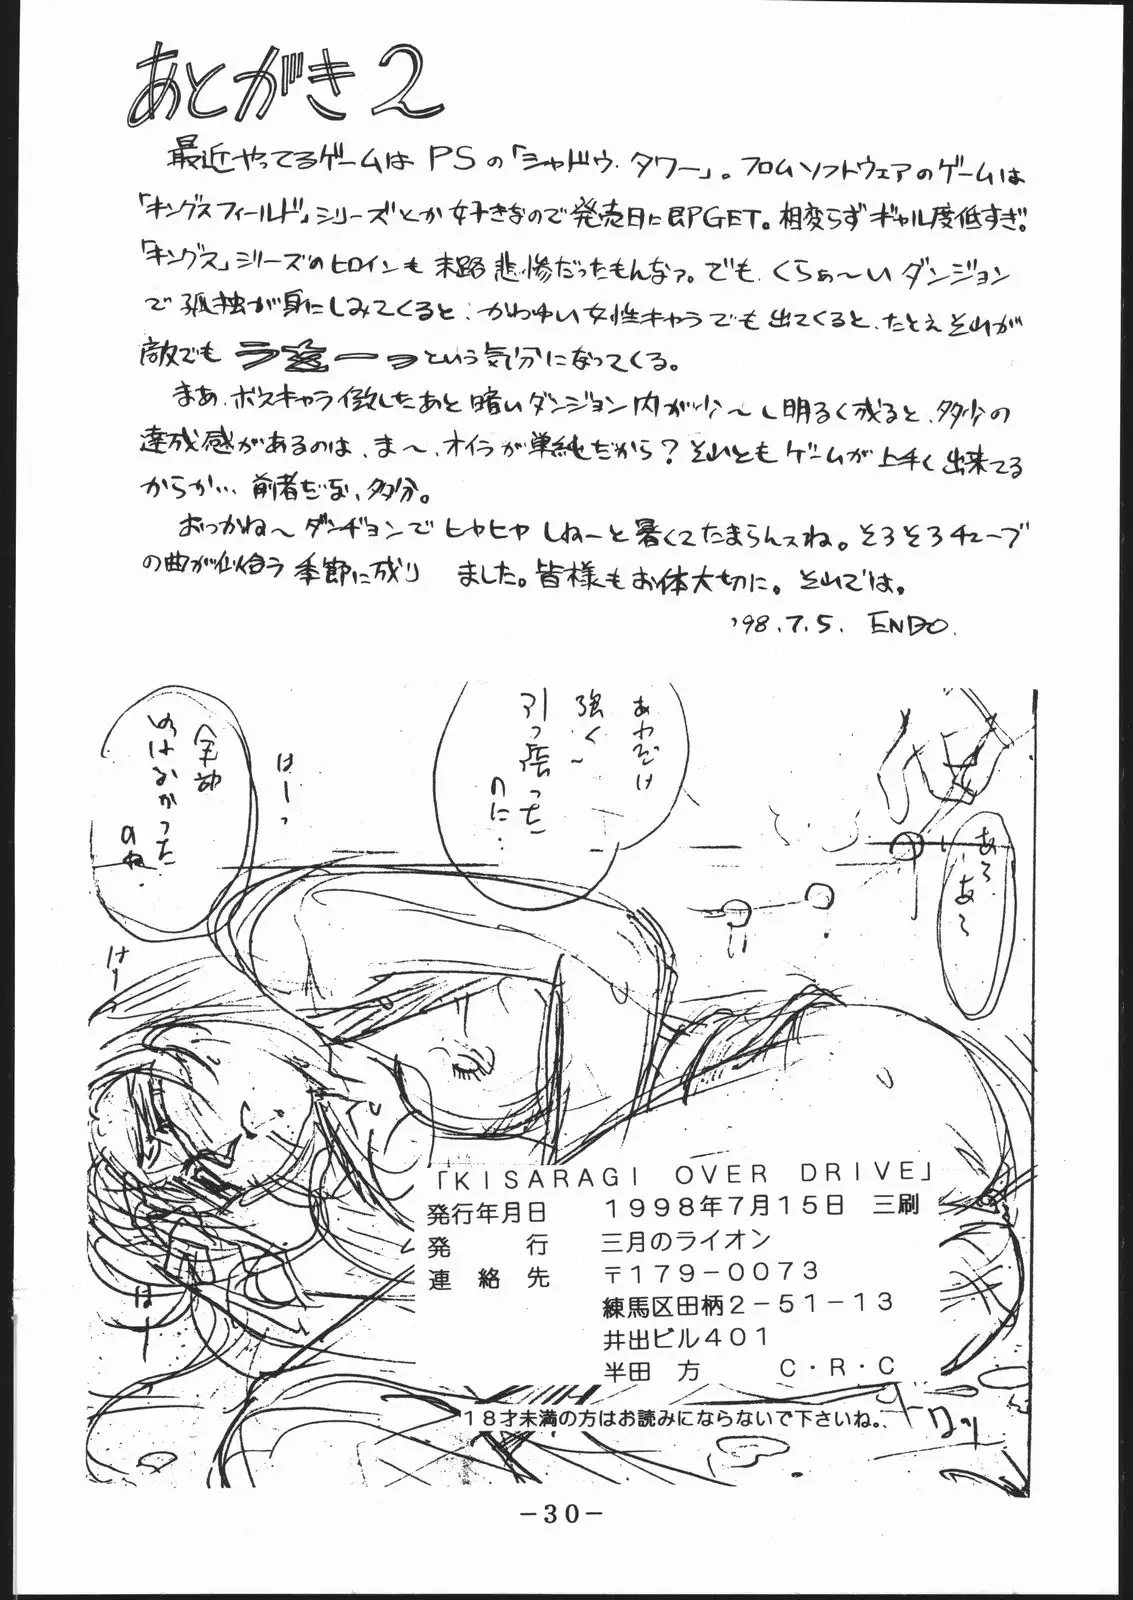 あとがき2
最近やってるゲームはPSの「シャドウ・タワー」。フロムソフトウェアのゲームは
「キングスフィールド」シリーズとか好きなので発売日に即GET。相変らずギャル度低すぎ。
「キングス」シリーズのヒロインも末路悲惨だったもんなァ。でも、くらぁ〜いダンジョン
で孤独が身にしみてくると、かわゆい女性キャラでも出てくると、たとえそれが
敵でも という気分になってくる。
まあ、ボスキャラ倒したあと暗いダンジョン内が少〜し明るく成ると、多少の
達成感があるのは、ま〜、オイラが単純だから？それともゲームが上手く出来てる
からか… 前者だな、多分。
おっかね〜ダンヂョンでヒヤヒヤしねーと暑くてたまらんスね。そろそろチューブ
の曲が似合う季節に成りました。皆様もお体大切に。それでは。
'98.7.5. ENDO.
あれだけ
強く〜
引っ張った
のに…
はーっ
全部
のね.
あら
あら
はー
はー
「KISARAGI OVER DRIVE」
発行年月日 1998年7月15日 三刷
発行 三月のライオン
連絡先 〒179-0073
練馬区田柄2-51-13
井出ビル401
半田 方 C・R・C
18才未満の方はお読みにならないで下さいね。
-30-